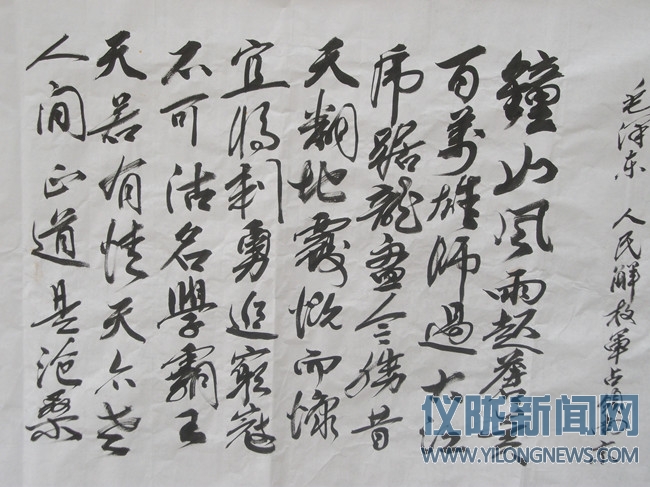 毛泽东 人民解放軍占领南京
鐘山风雨起蒼黄
百萬雄师過大江
虎踞龍盘今勝昔
天翻地覆慨而慷
宜将剩勇追窮寇
不可沽名學霸王
天若有情天亦老
人间正道是沧桑
仪陇新闻网
WWW.YILONGNEWS.COM